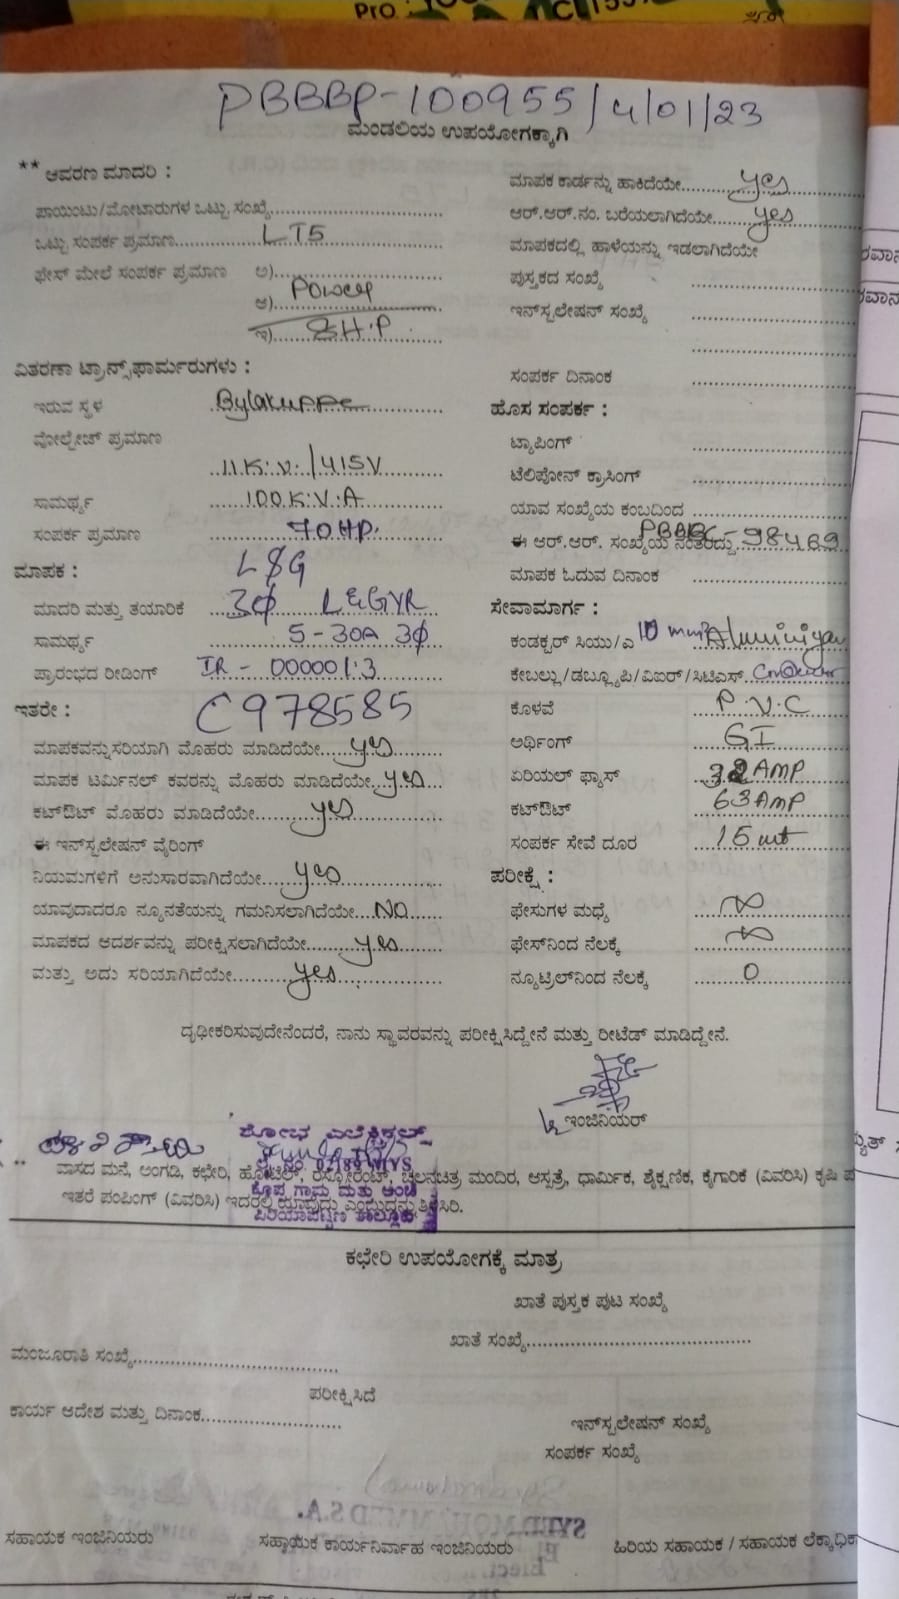 PBBBP-100955/4/01/23
ಮಂಡಲಿಯ ಉಪಯೋಗಕ್ಕಾಗಿ
** ಆವರಣ ಮಾದರಿ :
ಪಾಯಿಂಟು/ಮೋಟಾರುಗಳ ಒಟ್ಟು ಸಂಖ್ಯೆ
ಒಟ್ಟು ಸಂಪರ್ಕ ಪ್ರಮಾಣ LT5
ಫೇಸ್ ಮೇಲೆ ಸಂಪರ್ಕ ಪ್ರಮಾಣ ಅ)
ಆ) Power
ಇ) 8H.P
ವಿತರಣಾ ಟ್ರಾನ್ಸ್‌ಫಾರ್ಮರುಗಳು :
ಇರುವ ಸ್ಥಳ Bylakuppe
ವೋಲ್ಟೇಜ್ ಪ್ರಮಾಣ
11K.V./415V
ಸಾಮರ್ಥ್ಯ 100K.V.A
ಸಂಪರ್ಕ ಪ್ರಮಾಣ 70HP.
ಮಾಪಕ : L&G
ಮಾದರಿ ಮತ್ತು ತಯಾರಿಕೆ 3Ø L&GYR
ಸಾಮರ್ಥ್ಯ 5-30A 3Ø
ಪ್ರಾರಂಭದ ರೀಡಿಂಗ್ IR - 000001.3
ಇತರೇ : C978585
ಮಾಪಕವನ್ನುಸರಿಯಾಗಿ ಮೊಹರು ಮಾಡಿದೆಯೇ yes
ಮಾಪಕ ಟರ್ಮಿನಲ್ ಕವರನ್ನು ಮೊಹರು ಮಾಡಿದೆಯೇ yes
ಕಟ್‌ಔಟ್ ಮೊಹರು ಮಾಡಿದೆಯೇ yes
ಈ ಇನ್‌ಸ್ಟಲೇಷನ್ ವೈರಿಂಗ್
ನಿಯಮಗಳಿಗೆ ಅನುಸಾರವಾಗಿದೆಯೇ yes
ಯಾವುದಾದರೂ ನ್ಯೂನತೆಯನ್ನು ಗಮನಿಸಲಾಗಿದೆಯೇ NO
ಮಾಪಕದ ಆದರ್ಶವನ್ನು ಪರೀಕ್ಷಿಸಲಾಗಿದೆಯೇ yes
ಮತ್ತು ಅದು ಸರಿಯಾಗಿದೆಯೇ yes
ಮಾಪಕ ಕಾರ್ಡನ್ನು ಹಾಕಿದೆಯೇ yes
ಆರ್.ಆರ್.ನಂ. ಬರೆಯಲಾಗಿದೆಯೇ yes
ಮಾಪಕದಲ್ಲಿ ಹಾಳೆಯನ್ನು ಇಡಲಾಗಿದೆಯೇ
ಪುಸ್ತಕದ ಸಂಖ್ಯೆ
ಇನ್‌ಸ್ಟಲೇಷನ್ ಸಂಖ್ಯೆ
ಸಂಪರ್ಕ ದಿನಾಂಕ
ಹೊಸ ಸಂಪರ್ಕ :
ಟ್ಯಾಪಿಂಗ್
ಟೆಲಿಫೋನ್ ಕ್ರಾಸಿಂಗ್
ಯಾವ ಸಂಖ್ಯೆಯ ಕಂಬದಿಂದ
ಈ ಆರ್.ಆರ್. ಸಂಖ್ಯೆಯ ನಂತರದ್ದು 98469
ಮಾಪಕ ಓದುವ ದಿನಾಂಕ
ಸೇವಾಮಾರ್ಗ :
ಕಂಡಕ್ಟರ್ ಸಿಯು/ಎ 10 mm²
ಕೇಬಲ್ಲು/ಡಬ್ಲ್ಯೂಪಿ/ವಿಐರ್/ಸಿಟಿಎಸ್
ಕೊಳವೆ P.V.C
ಅರ್ಥಿಂಗ್ GI
ಏರಿಯಲ್ ಫ್ಯೂಸ್ 32 AMP
ಕಟ್‌ಔಟ್ 63 AMP
ಸಂಪರ್ಕ ಸೇವೆ ದೂರ 15 mt
ಪರೀಕ್ಷೆ :
ಫೇಸುಗಳ ಮಧ್ಯೆ ∞
ಫೇಸ್‌ನಿಂದ ನೆಲಕ್ಕೆ ∞
ನ್ಯೂಟ್ರಿಲ್‌ನಿಂದ ನೆಲಕ್ಕೆ 0
ದೃಢೀಕರಿಸುವುದೇನೆಂದರೆ, ನಾನು ಸ್ಥಾವರವನ್ನು ಪರೀಕ್ಷಿಸಿದ್ದೇನೆ ಮತ್ತು ರೀಟೆಡ್ ಮಾಡಿದ್ದೇನೆ.
ಇಂಜಿನಿಯರ್
ಶೋಭ ಎಲೆಕ್ಟ್ರಿಕಲ್ಸ್
** ವಾಸದ ಮನೆ, ಅಂಗಡಿ, ಕಛೇರಿ, ಹೋಟೆಲ್, ರೆಸ್ಟೋರೆಂಟ್, ಚಲನಚಿತ್ರ ಮಂದಿರ, ಆಸ್ಪತ್ರೆ, ಧಾರ್ಮಿಕ, ಶೈಕ್ಷಣಿಕ, ಕೈಗಾರಿಕೆ (ವಿವರಿಸಿ) ಕೃಷಿ
ಕೊಪ್ಪ ಗ್ರಾಮ ಮತ್ತು ಅಂಚೆ
ಇತರೆ ಪಂಪಿಂಗ್ (ವಿವರಿಸಿ) ಇದರಲ್ಲಿ ಯಾವುದು ಎಂಬುದನ್ನು ತಿಳಿಸಿರಿ.
ಪಿರಿಯಾಪಟ್ಟಣ ತಾಲ್ಲೂಕು
ಕಛೇರಿ ಉಪಯೋಗಕ್ಕೆ ಮಾತ್ರ
ಖಾತೆ ಪುಸ್ತಕ ಪುಟ ಸಂಖ್ಯೆ
ಖಾತೆ ಸಂಖ್ಯೆ
ಮಂಜೂರಾತಿ ಸಂಖ್ಯೆ
ಪರೀಕ್ಷಿಸಿದೆ
ಕಾರ್ಯ ಆದೇಶ ಮತ್ತು ದಿನಾಂಕ
ಇನ್‌ಸ್ಟಲೇಷನ್ ಸಂಖ್ಯೆ
ಸಂಪರ್ಕ ಸಂಖ್ಯೆ
ಸಹಾಯಕ ಇಂಜಿನಿಯರು ಸಹಾಯಕ ಕಾರ್ಯನಿರ್ವಾಹ ಇಂಜಿನಿಯರು ಹಿರಿಯ ಸಹಾಯಕ / ಸಹಾಯಕ